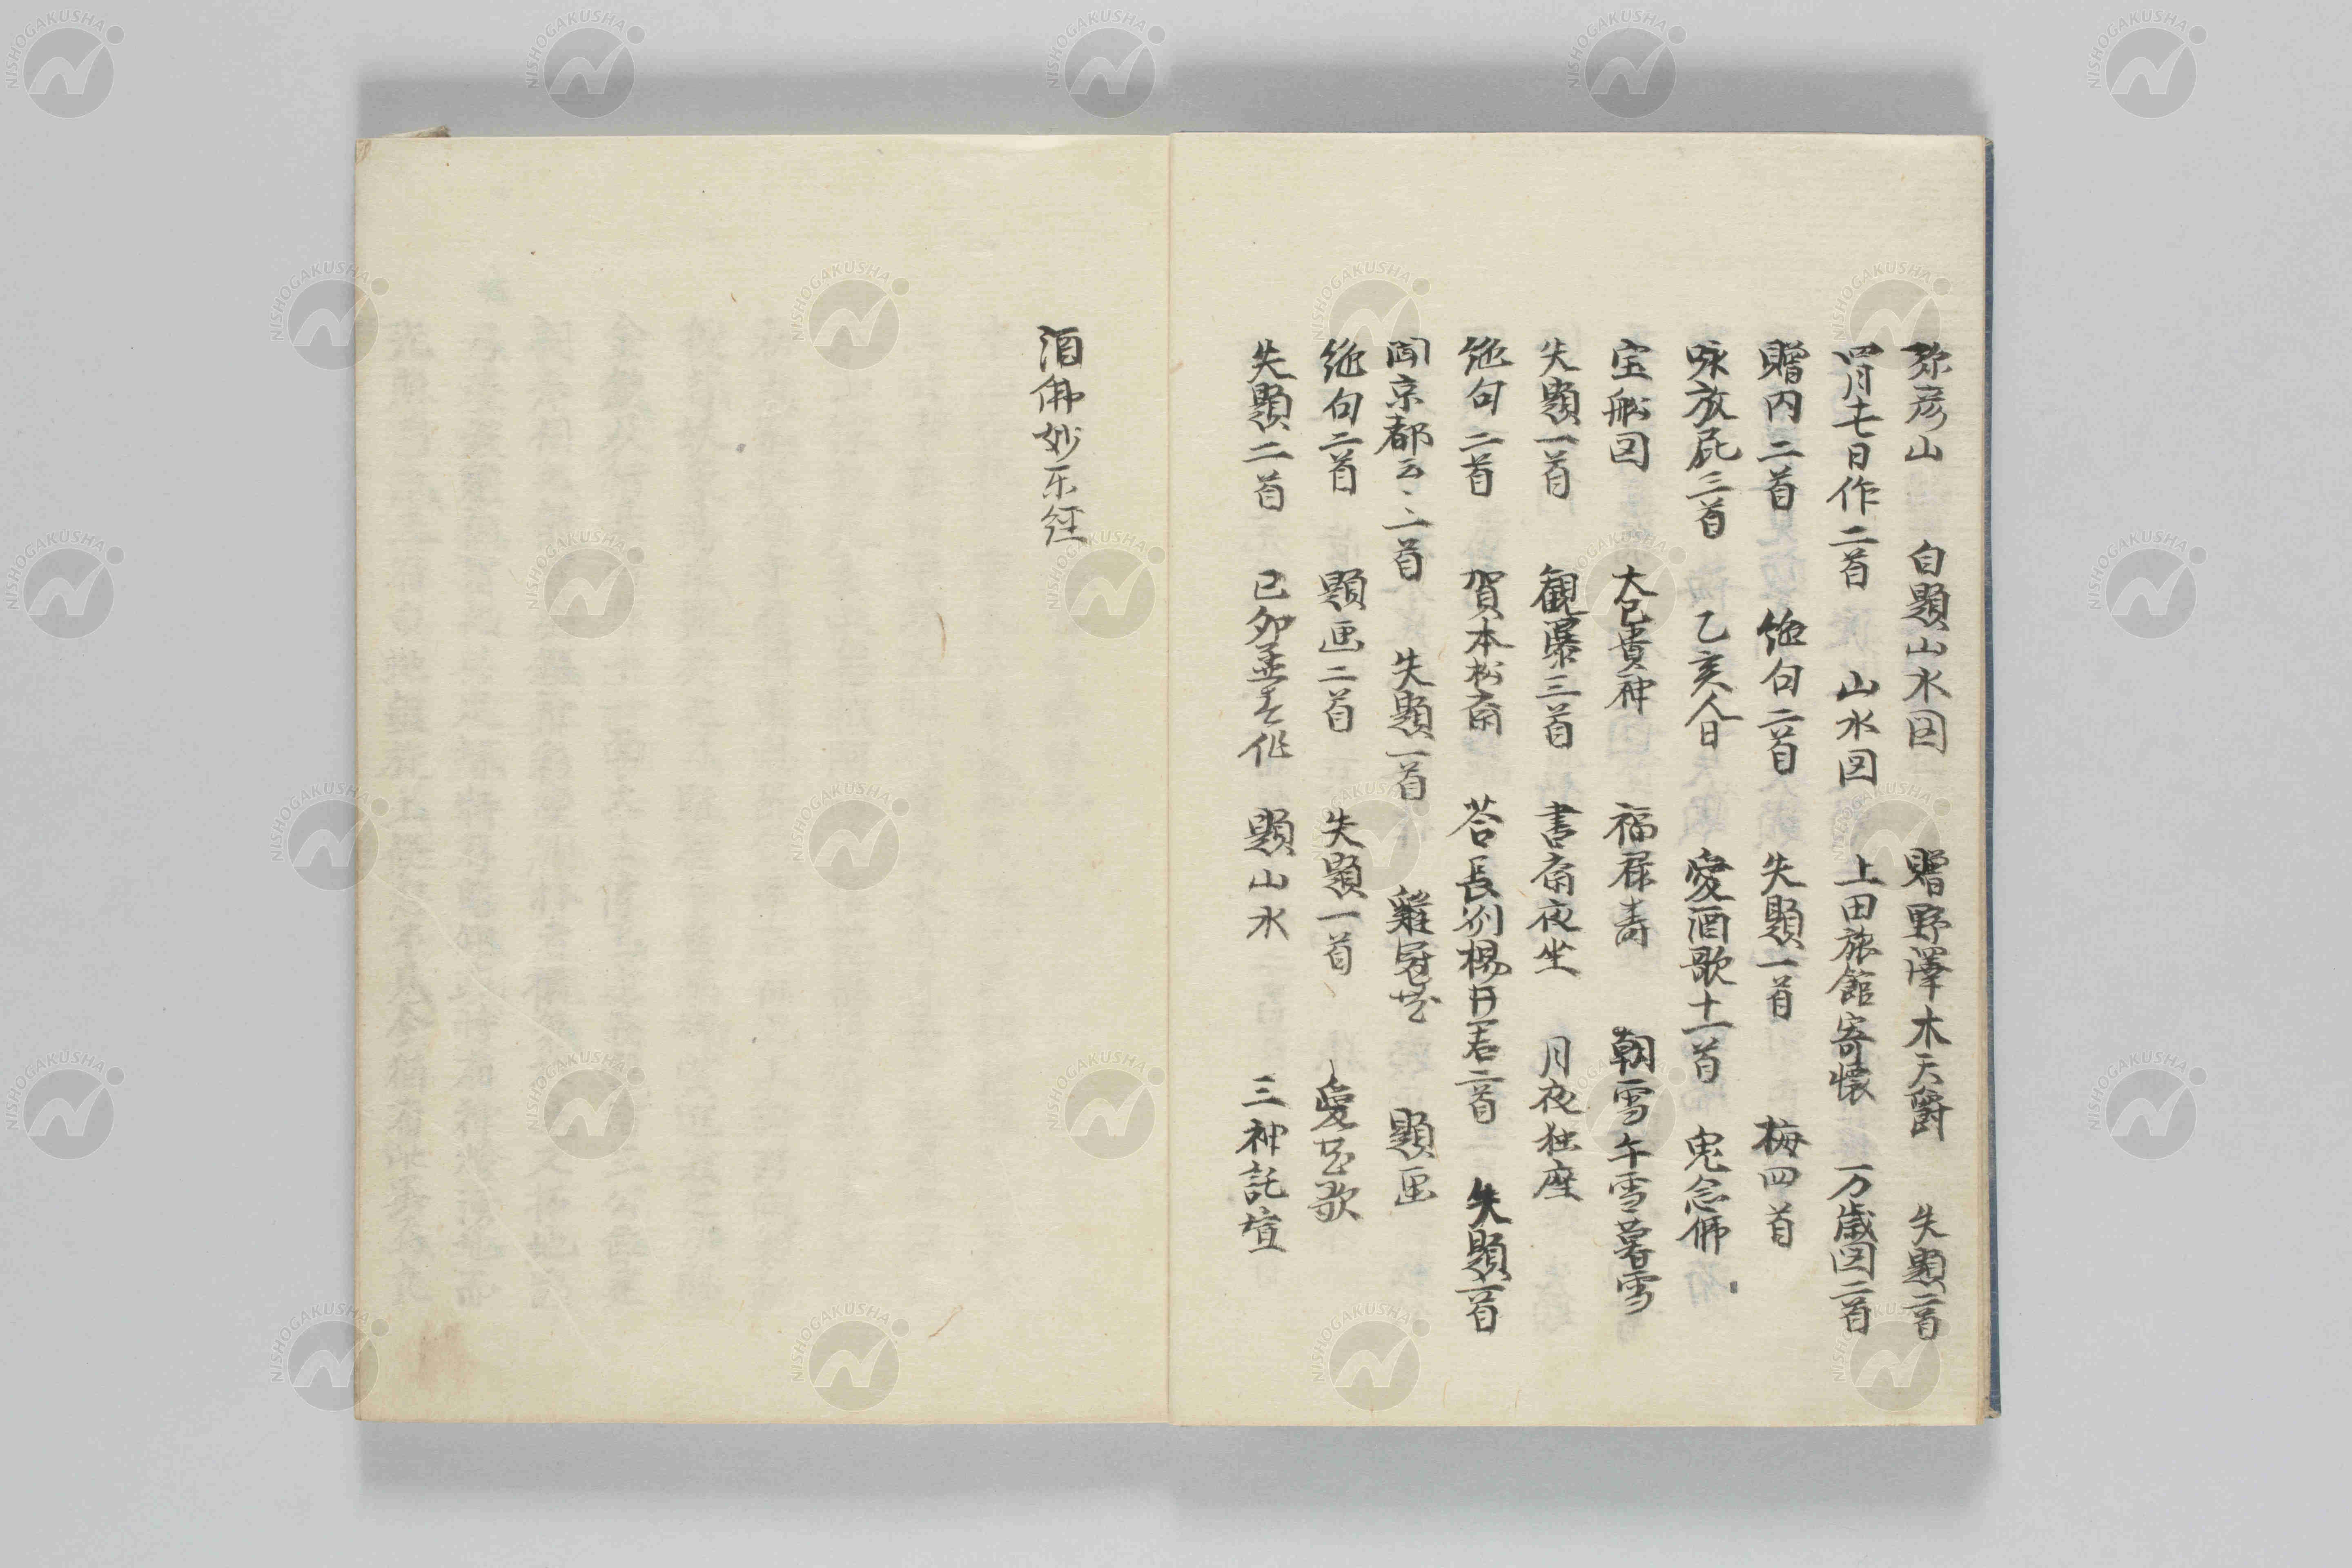 弥彦山　自題山水図　贈野澤木天爵　失題二首
四月十七日作二首　山水図　上田旅館寄懐　万歳図二首
贈内二首　絶句二首　失題一首　梅四首
咏放屁三首　乙亥人日　愛酒歌十一首　鬼念佛
宝船図　大已貴神　福禄寿　朝雪午雪暮雪
失題一首　観瀑三首　書斎夜坐　月夜独座
絶句二首　賀本松斎　答長州楊井君二首　失題二首
聞京都云々二首　失題一首　雞冠花　題画
絶句二首　題画二首　失題一首　愛花歌
失題二首　已卯孟春作　題山水　三神託宣
酒佛妙楽経
NISHOGAKUSHA